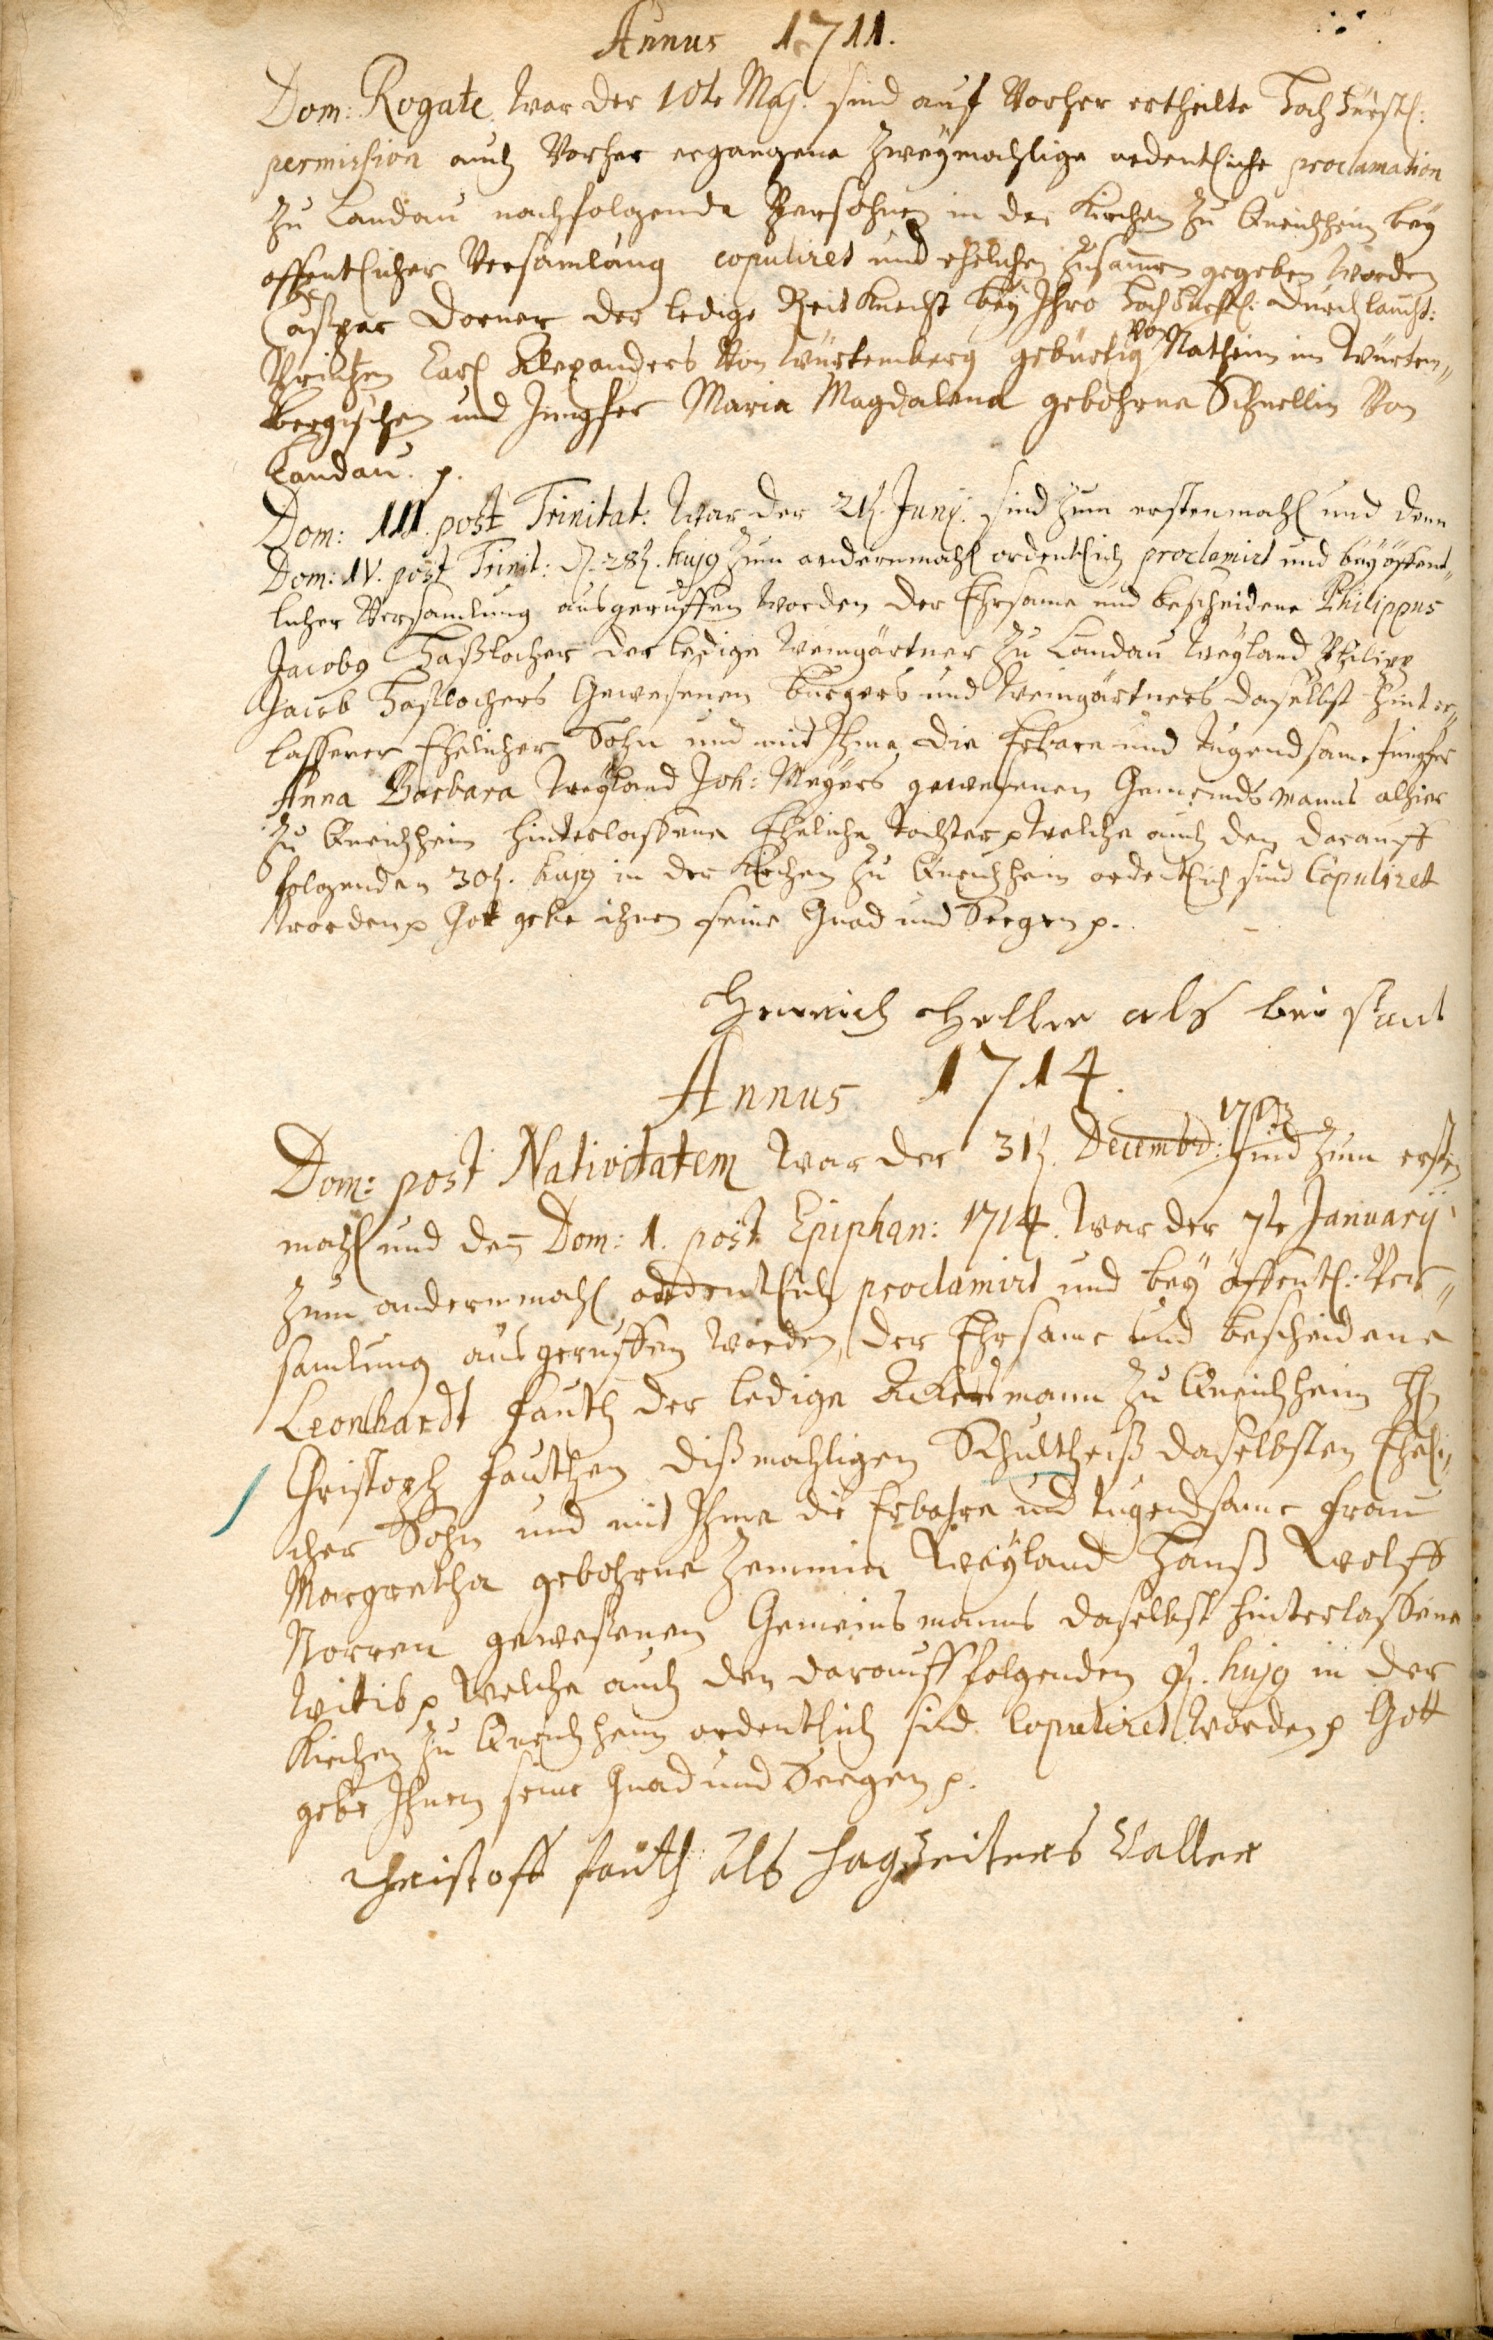 Annus 1711.
Dom: Rogate war der 10te Maij. sind auf Vorher ertheilte Hochfürstl:
permission auch Vorher ergangene zweymahlige ordentliche proclamation
zu Landau nachfolgende Persohnen in der Kirchen zu Queichheim bey
offentlicher Versamlung copuliret und ehelichen zusamen gegeben worden
Caspar Dorner der ledige Reit Knecht bey Ihro Hochfürstl: Durchlaucht:
Printzen Carl Alexanders Von Würtemberg gebürtig von Natheim im Würten„
bergischen und Jungfer Maria Magdalena gebohrne Schnellin Von
Landau. p.
Dom: III. post Trinitat: War der 21t. Junij. sind zum erstenmahl und denn
Dom: IV. post Trinit: d. 28t. huj9 zum andernmahl ordentlich proclamirt und bey öffent„
licher Versamlung ausgeruffen worden der Ehrsame und bescheidene Philippus
Jacob9 Haßlocher der ledige Weingärtner zu Landau Weyland Philipp
Jacob Haßlochers Gewesenen Burgers und Weingärtners daselbst hinter„
lassener Ehelicher Sohn und mit Ihme die Erbare und tugendsame Jungfer
Anna Barbara Weyland Joh: Meyers gewesenen Gemeinds manns alhier
zu Queichheim hinterlassene Eheliche Tochter p welche auch den darauff
folgenden 30t. huj9 in der Kirchen zu Queichheim ordentlich sind Copuliret
worden p Gott gebe ihnen seine Gnad und Seegen p.
Henrich Heller als bei stant
Annus 1714.
Dom: post Nativitatem war der 31t. Decembr: 1713 sind zum ersten
mahl und den Dom: 1. post Epiphan: 1714. War der 7te Januarij
zum andernmahl ordentlich proclamirt und bey öffentl: Ver„
samlung ausgeruffen worden, der Ehrsame und bescheidene
Leonhardt Fauth der ledige Ackersmann zu Queichheim H
Christoph Fauthen dißmahligen Schultheiß daselbsten Eheli„
cher Sohn und mit Ihme die Erbahre und tugendsame Frau
Margretha gebohrne Weyland Hanß Wolff
Norren gewesenen Gemeinsmanns daselbst hinterlassene
Witib p welche auch den darauff folgenden 9t. huj9 in der
Kirchen zu Queichheim ordentlich sind Copuliret worden p Gott
gebe Ihnen seine Gnad und Seegen p.
Christoff Fauth als hagzeiters Vatter